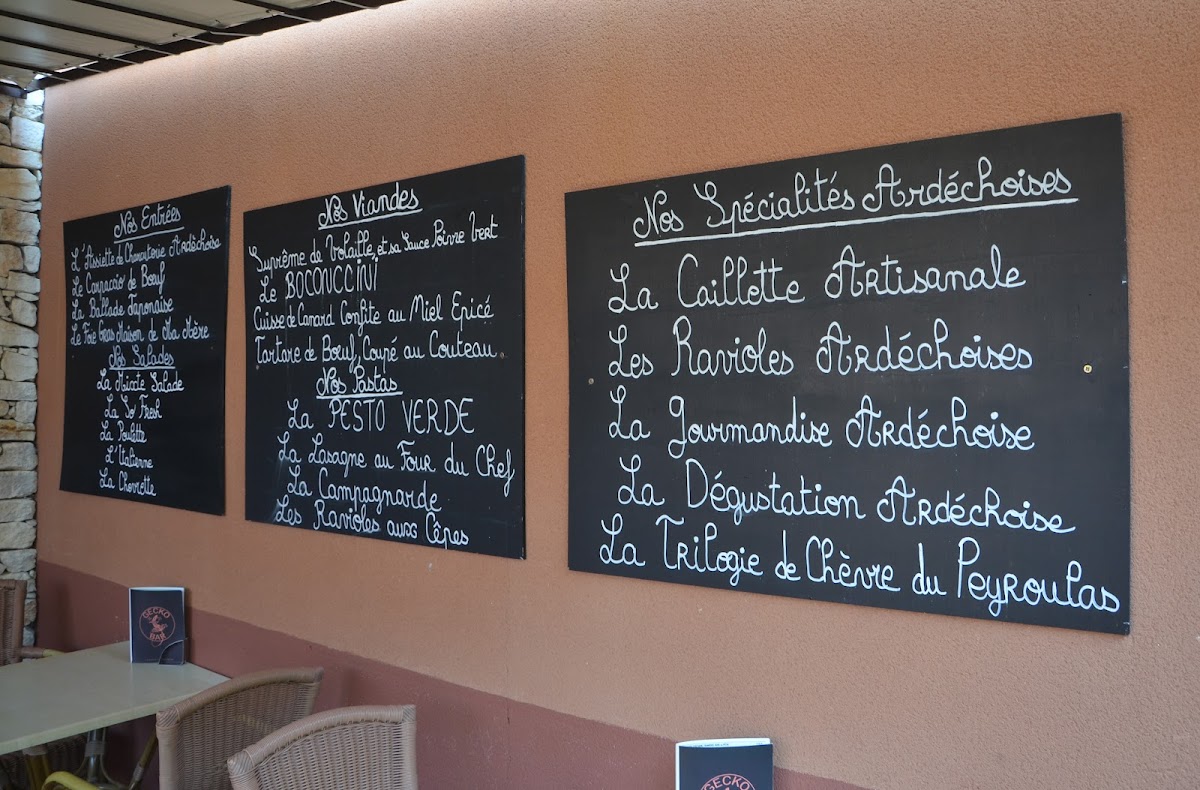 Nos Entrées
L'Assiette de Charcuterie Ardéchoise
Le Carpaccio de Bœuf
La Ballade Japonaise
Le Foie Gras Maison de Ma Mère
Nos Salades
La Mixte Salade
La So' Fresh
La Poulette
L'Italienne
La Chevrotte
Nos Viandes
Suprême de Volaille et sa Sauce Poivre Vert
Le BOCONCCINI
Cuisse de Canard Confite au Miel Epicé
Tartare de Bœuf, Coupé au Couteau
Nos Pastas
La PESTO VERDE
La Lasagne au Four du Chef
La Campagnarde
Les Ravioles aux Cêpes
Nos Spécialités Ardéchoises
La Caillette Artisanale
Les Ravioles Ardéchoises
La Gourmandise Ardéchoise
La Dégustation Ardéchoise
La Trilogie de Chèvre du Peyroulas
GECKO
BAR
GECKO